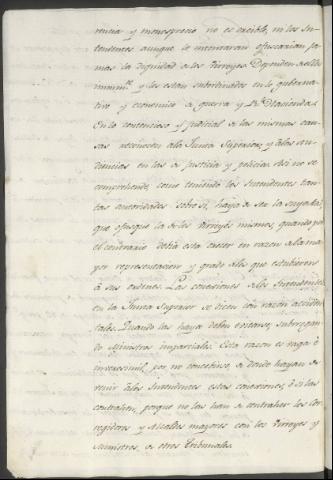 rencia y menosprecio no es creible, ni los In-
tendentes aunque lo intentaran ofuscarian ja-
mas la dignidad de los Virreyes. Dependen de ellos
y les estan subordinados en lo guberna-
tivo y economico de guerra y Rl. Hacienda.
En lo contencioso y judicial de las mismas cau-
sas reconocen a la Junta Superior, y a las Au-
diencias en las de justicia y policia. Asi no se
comprehende, como teniendo los Intendentes tan-
tas autoridades sobre si, haya de ser la suya la
que ofusque la de los Virreyes mismos, quando por
el contrario debia esta crecer en razon de la ma-
yor representacion y grado de los que estubieron
à sus ordenes. Las conexiones de los Intendentes
en la Junta Superior se dicen con razon acciden-
tales. Quando las haya deben evitarse, subrogan-
do Ministros imparciales. Esta razon es vaga è
inverosimil, por no concebirse, de donde hayan de
venir à los Intendentes estas conexiones, ò si las
contrahen, porque no las han de contraher los Cor-
regidores y Alcaldes mayores con los Virreyes y
Ministros de otros Tribunales.